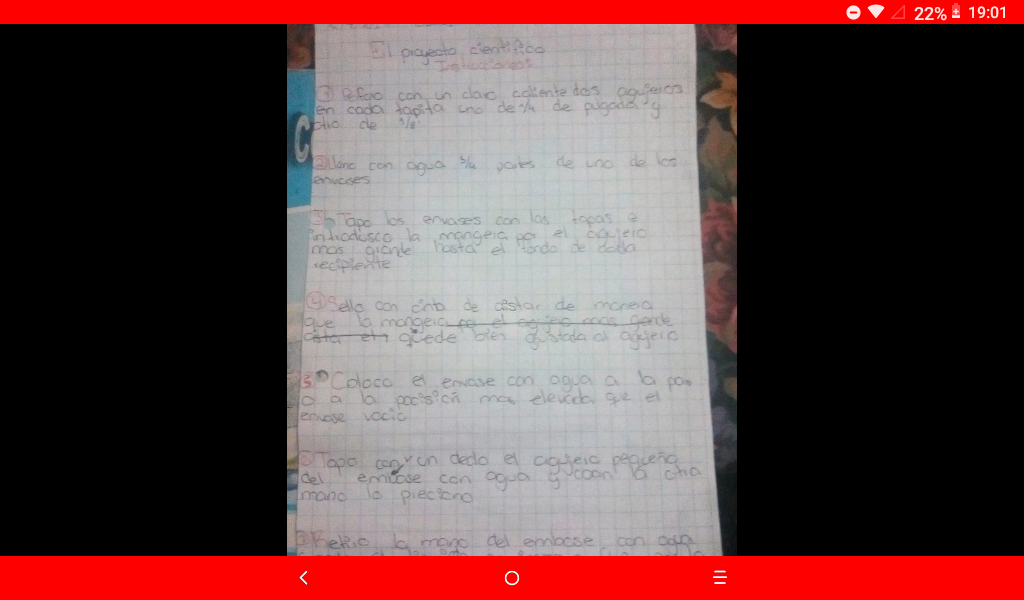 22% 19:01
El proyecto científico
Instrucciones
1 con un clavo caliente dos agujeros
en cada tapita uno de 1/4 de pulgada y
otro de 1/8
2 lleno con agua 3/4 partes de uno de los
envases
3 Tapo los envases con las tapas e
introdusco la mangera por el agujero
mas grande hasta el fondo de cada
recipiente
4 Sello con cinta de de manera
que la mangera por el agujero mas grande
quede bien gustada al agujero
5 Coloco el envase con agua a la par
o a la mas elevada que el
envase vacio
6 Tapo con un dedo el agujero pequeño
del embase con agua y coon la otra
mano lo preciono
la mano del embase con agua